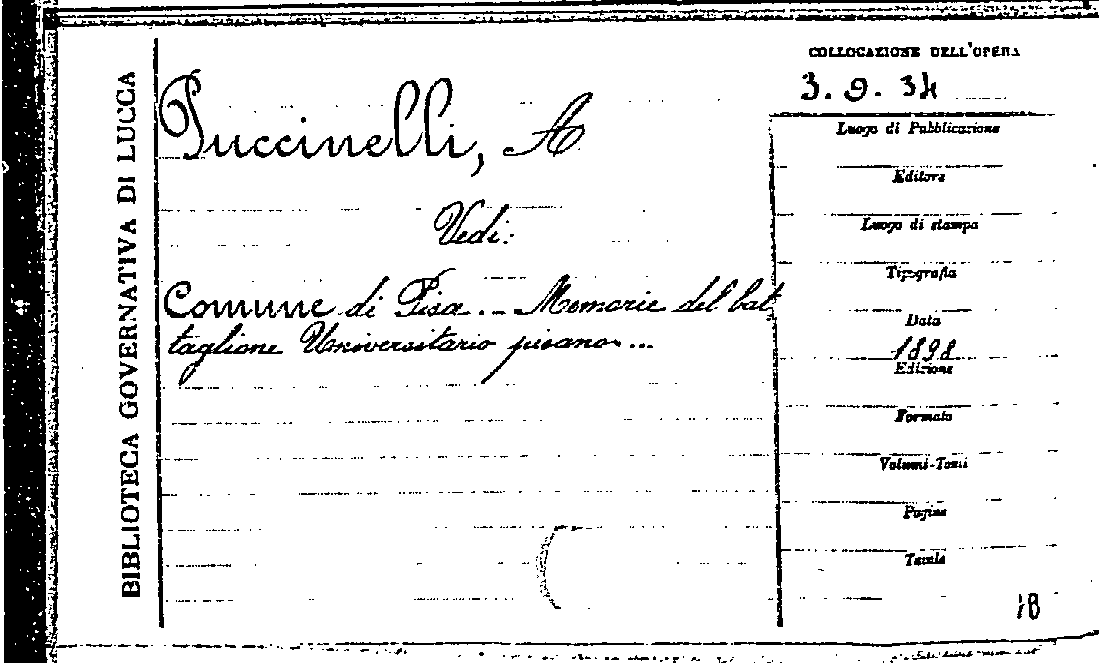 BIBLIOTECA GOVERNATIVA DI LUCCA
Puccinelli, A
Vedi:
Comune di Pisa. - Memorie del bat
taglione Universitario pisano...
COLLOCAZIONE DELL'OPERA
3. 9. 34
Luogo di Pubblicazione
Editore
Luogo di stampa
Tipografia
Data
1898
Edizione
Formato
Volumi-Tomi
Pagine
Tavole
18